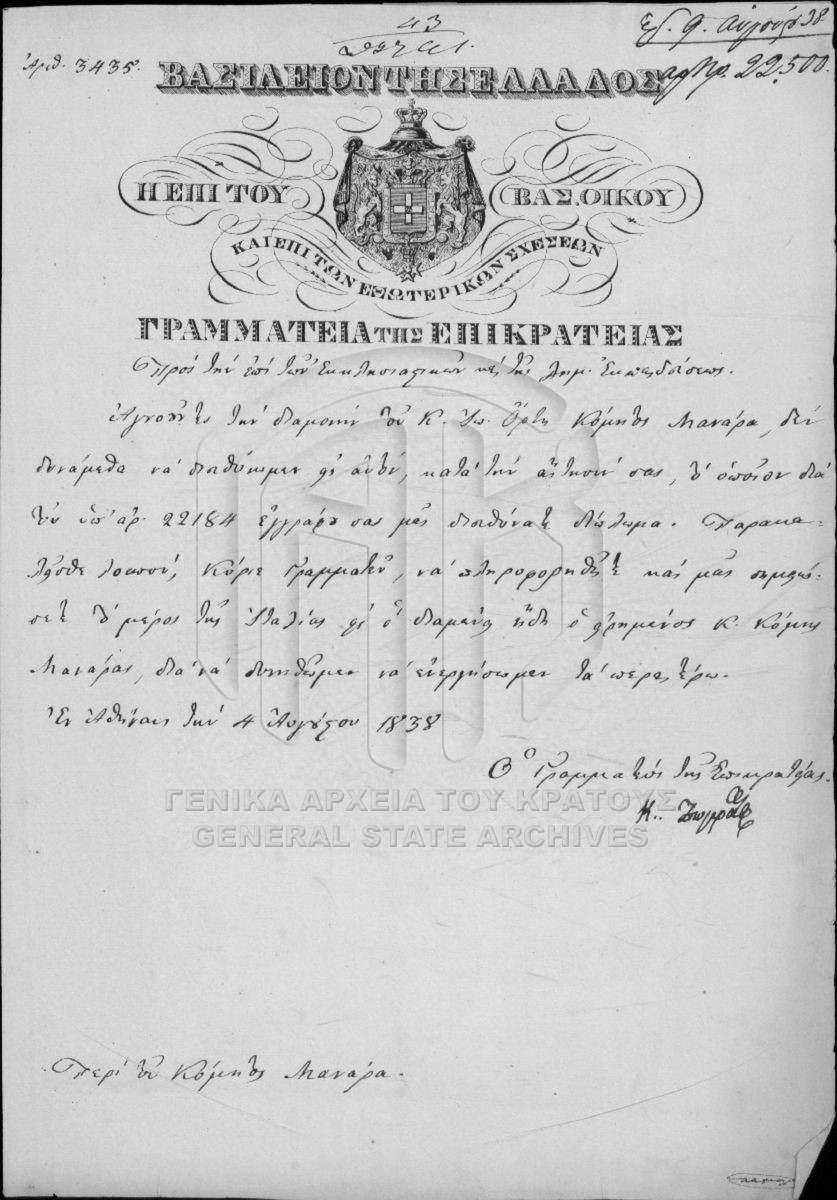 43
Ἀριθ. 3435.
Ἐλ. 9. Αὐγούστ 38.
ἀρ Πρ. 22500.
ΒΑΣΙΛΕΙΟΝ ΤΗΣ ΕΛΛΑΔΟΣ
Η ΕΠΙ ΤΟΥ ΒΑΣ. ΟΙΚΟΥ
ΚΑΙ ΕΠΙ ΤΩΝ ΕΞΩΤΕΡΙΚΩΝ ΣΧΕΣΕΩΝ
ΓΡΑΜΜΑΤΕΙΑ ΤΗΣ ΕΠΙΚΡΑΤΕΙΑΣ
Πρὸς τὴν ἐπὶ τῶν Ἐκκλησιαστικῶν καὶ τῆς Δημ. Ἐκπαιδεύσεως.
Ἀγνοοῦντες τὴν διαμονὴν τοῦ Κ. Κόμητος Μανάρα, δὲν
δυνάμεθα νὰ διευθύνωμεν εἰς αὐτόν, κατὰ τὴν αἴτησίν σας, τὸ ὁποῖον διὰ
τοῦ ὑπ' ἀρ. 22184 ἐγγράφου σας μᾶς διευθύνατε δίπλωμα. Παρακα-
λεῖσθε λοιπόν, Κύριε Γραμματεῦ, νὰ πληροφορηθῆτε καὶ μᾶς σημειώ-
σετε τὸ μέρος τῆς Ἰταλίας εἰς ὃ διαμένει ἤδη ὁ εἰρημένος Κ. Κόμης
Μανάρας, διὰ νὰ δυνηθῶμεν νὰ ἐνεργήσωμεν τὰ περαιτέρω.
Ἐν Ἀθήναις τὴν 4 Αὐγούστου 1838
Ὁ Γραμματεὺς τῆς Ἐπικρατείας.
Κ. Ζωγράφος
ΓΕΝΙΚΑ ΑΡΧΕΙΑ ΤΟΥ ΚΡΑΤΟΥΣ
GENERAL STATE ARCHIVES
Περὶ τοῦ Κόμητος Μανάρα.